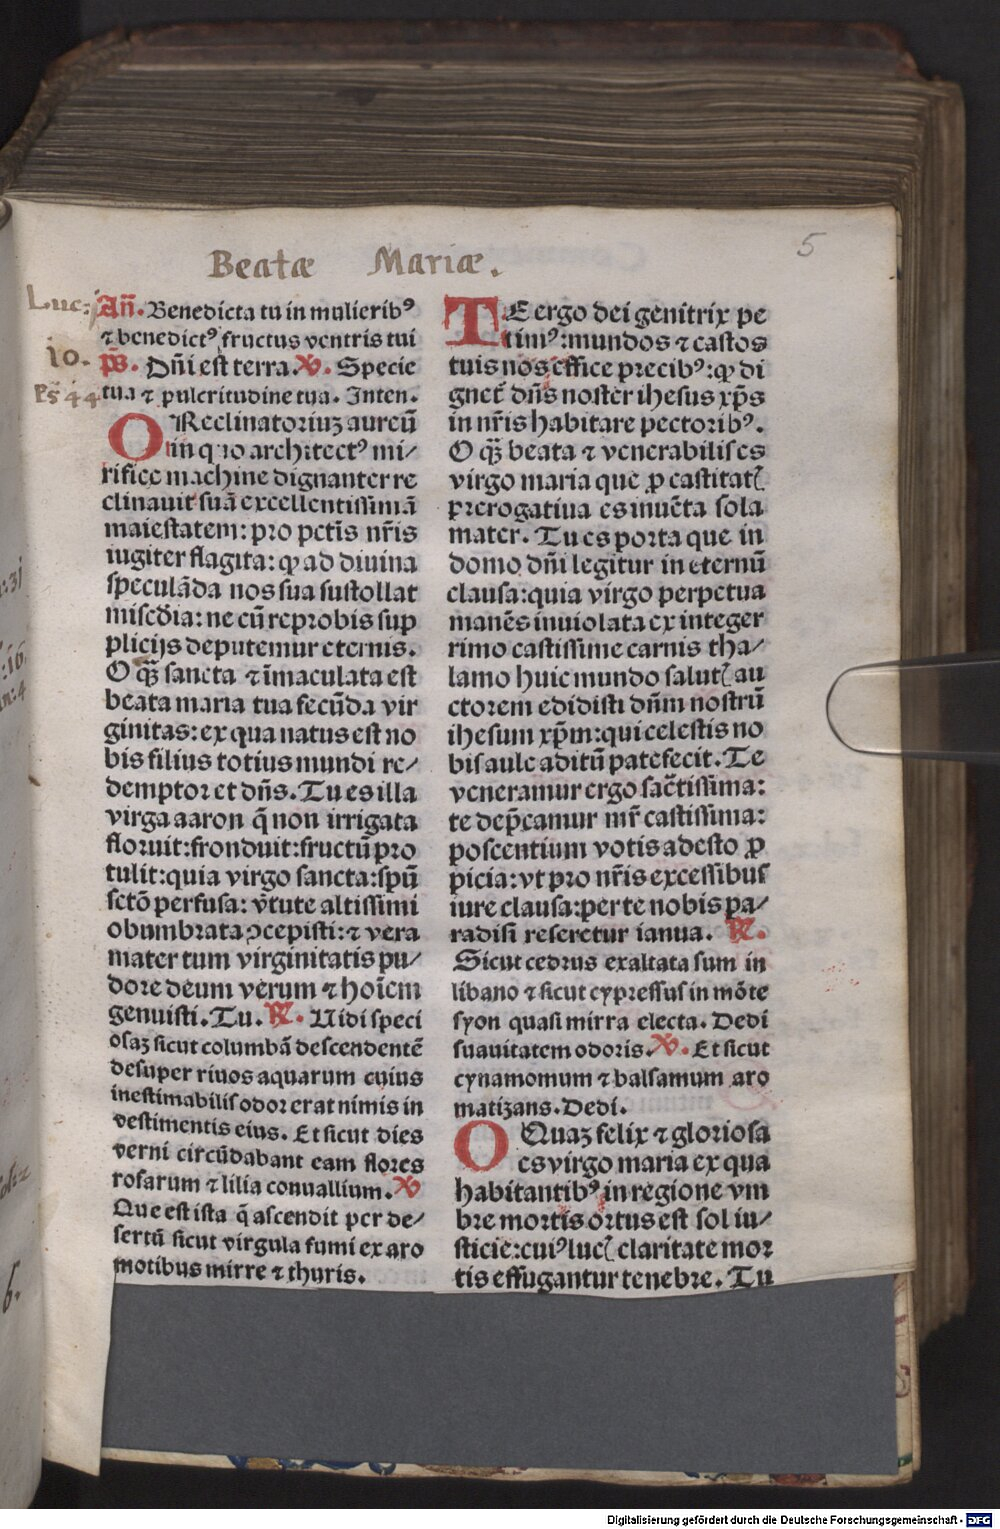 5
Beatæ Mariæ.
Luc: j
10.
Ps 44
Añ. Benedicta tu in mulieribꝰ
⁊ benedictꝰ fructus ventris tui
p̃s. Dñi est terra. ℣. Specie
tua ⁊ pulcritudine tua. Inten.
O Reclinatoriuꝫ aureũ
in quo architectꝰ mi/
rifice machine dignanter re
clinauit suã excellentissimã
maiestatem: pro pctĩs nr̃is
iugiter flagita: ꝙ ad diuina
speculãda nos sua sustollat
misc̃dia: ne cũ reprobis sup
plicijs deputemur eternis.
O q̃ꝫ sancta ⁊ ĩmaculata est
beata maria tua fecũda vir
ginitas: ex qua natus est no
bis filius totius mundi re/
demptor et dñs. Tu es illa
virga aaron q̃ non irrigata
floruit: fronduit: fructũ pro
tulit: quia virgo sancta: spũ
sctõ perfusa: ṽtute altissimi
obumbrata ↄcepisti: ⁊ vera
mater tum virginitatis pu/
dore deum verum ⁊ hoĩem
genuisti. Tu. ℟. Uidi speci
osaꝫ sicut columbã descendentẽ
desuper riuos aquarum cuius
inestimabilis odor erat nimis in
vestimentis eius. Et sicut dies
verni circũdabant eam flores
rosarum ⁊ lilia conuallium. ℣
Que est ista q̃ ascendit per de/
sertũ sicut virgula fumi ex aro
motibus mirre ⁊ thuris.
TE ergo dei genitrix pe
timꝰ: mundos ⁊ castos
tuis nos effice precibꝰ: ꝙ di
gnet̃ dñs noster ihesus xp̃s
in nr̃is habitare pectoribꝰ.
O q̃ꝫ beata ⁊ venerabilis es
virgo maria que ꝑ castitatꝭ
prerogatiua es inuẽta sola
mater. Tu es porta que in
domo dñi legitur in eternũ
clausa: quia virgo perpetua
manẽs inuiolata ex integer
rimo castissime carnis tha/
lamo huic mundo salutꝭ au
ctorem edidisti dñm nostrũ
ihesum xp̃m: qui celestis no
bis aule aditũ patefecit. Te
veneramur ergo sac̃tissima:
te dep̃camur mr̃ castissima:
poscentium votis adesto ꝓ
picia: vt pro nr̃is excessibus
iure clausa: per te nobis pa/
radisi reseretur ianua. ℟.
Sicut cedrus exaltata sum in
libano ⁊ sicut cypressus in mõte
syon quasi mirra electa. Dedi
suauitatem odoris. ℣. Et sicut
cynamomum ⁊ balsamum aro
matizans. Dedi.
O Quaꝫ felix ⁊ gloriosa
es virgo maria ex qua
habitantibꝰ in regione vm
bre mortis ortus est sol iu/
sticie: cuiꝰ lucꝭ claritate mor
tis effugantur tenebre. Tu
Digitalisierung gefördert durch die Deutsche Forschungsgemeinschaft - DFG